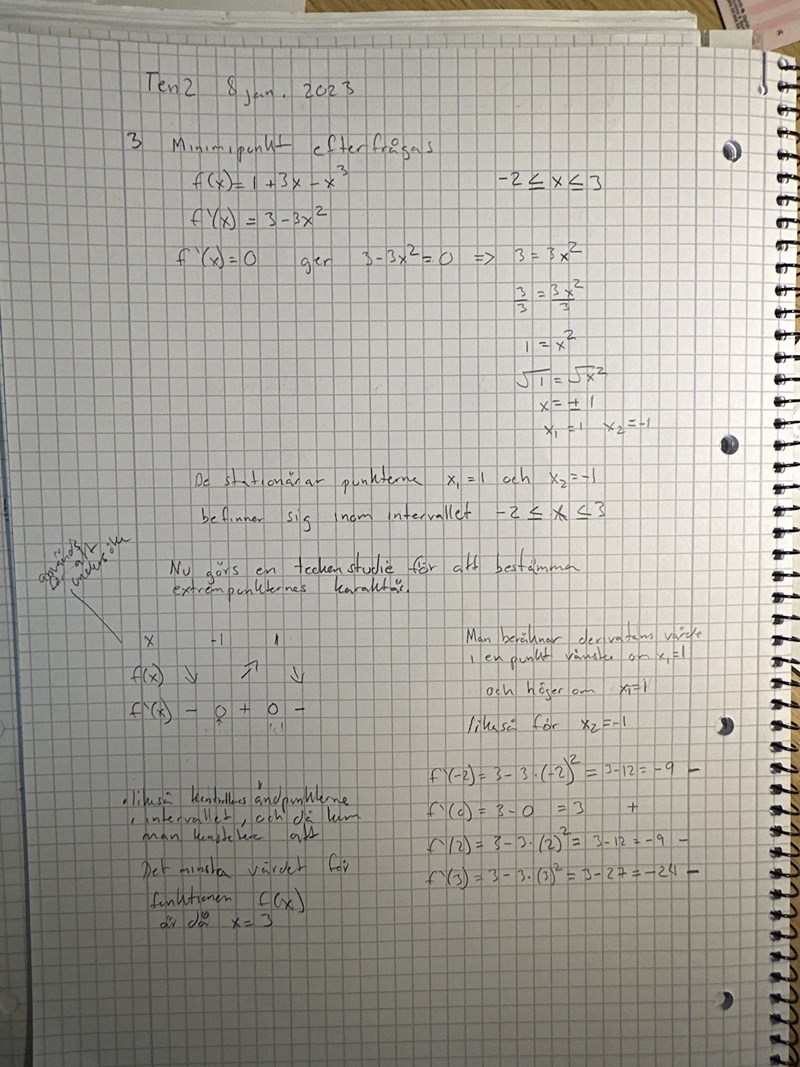 Ten2 8 jan. 2023
3 Minimipunkt efterfrågas
f(x)=1+3x-x³ -2 ≤ x ≤ 3
f'(x) = 3-3x²
f'(x)=0 ger 3-3x²=0 => 3=3x²
3/3 = 3x²/3
1=x²
√1=√x²
x=±1
x₁=1 x₂=-1
De stationärar punkterne x₁=1 och x₂=-1
befinner sig inom intervallet -2 ≤ x ≤ 3
används
att
undersöka
Nu görs en teckenstudie för att bestämma
extrempunkternes karaktär.
x -1 1
f(x) ↘ ↗ ↘
f'(x) - 0 + 0 -
Man beräknar derivatans värde
i en punkt vänster om x₁=1
och höger om x₁=1
likaså för x₂=-1
f'(-2)=3-3·(-2)²=3-12=-9 -
f'(0)=3-0 =3 +
f'(2)=3-3·(2)²=3-12=-9 -
f'(3)=3-3·(3)²=3-27=-24 -
likaså kontrolleras ändpunkterne
i intervallet, och då kan
man konstatera att
Det minsta värdet för
funktionen f(x)
är då x=3